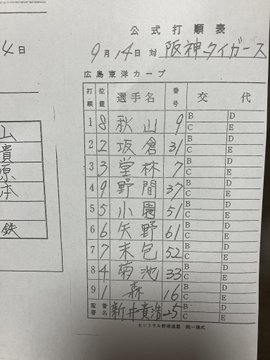 4日
山
貴
原
本
鉄
公式打順表
9月14日 対 阪神タイガース
広島東洋カープ
打順 位置 選手名 番号 交代
1 8 秋山 9 B D C E
2 2 坂倉 31 B D C E
3 3 堂林 7 B D C E
4 9 野間 37 B D C E
5 5 小園 51 B D C E
6 6 矢野 61 B D C E
7 7 末包 52 B D C E
8 4 菊池 33 B D C E
9 1 森 16 B D C E
監督 新井貴浩 25 B D C E
セントラル野球連盟 統一様式